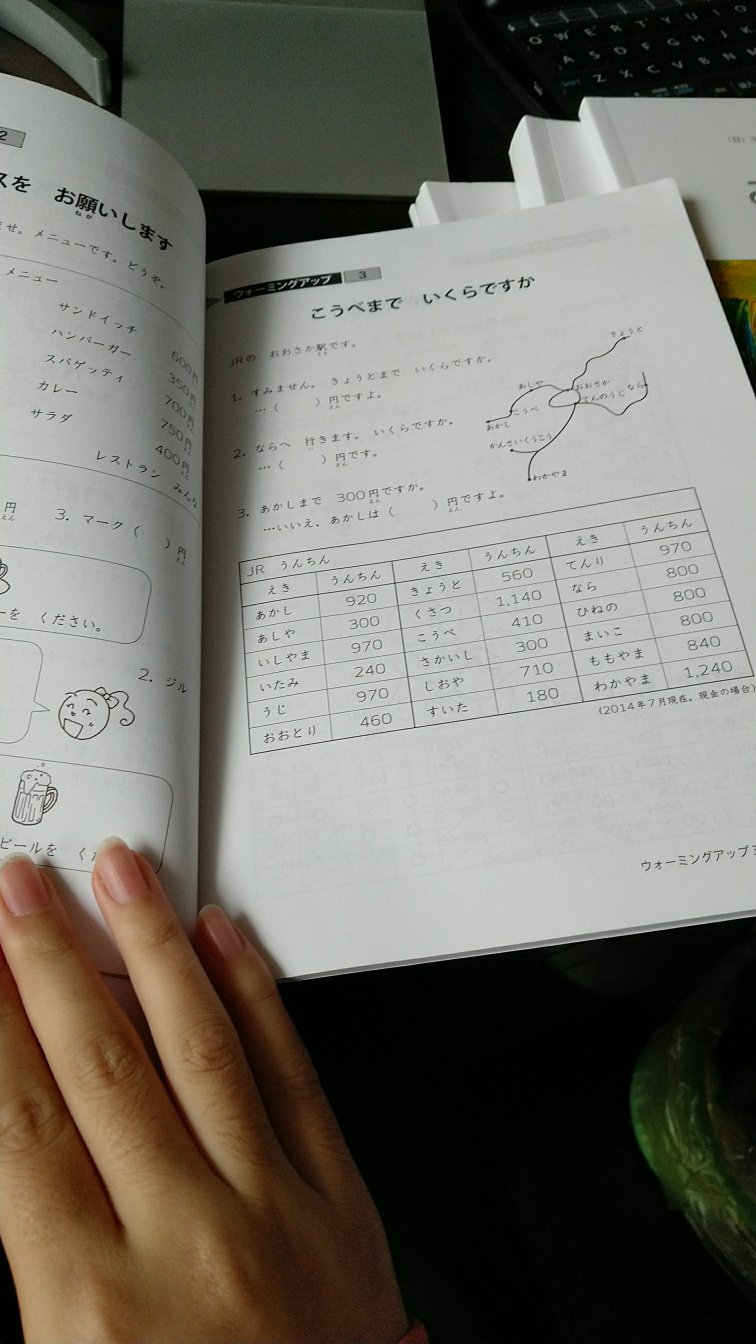 2
スを お願いします
ねが
ませ。メニューです。どうぞ。
メニュー
サンドイッチ 600円
ハンバーガー 350円
スパゲッティ 700円
カレー 750円
サラダ 400円
レストラン みんな
円
えん
3. マーク ( ) 円
えん
ーを ください。
2. ジル
ビールを くだ
ウォーミングアップ 3
こうべまで いくらですか
JRの おおさか駅です。
えき
1. すみません。 きょうとまで いくらですか。
…( )円ですよ。
えん
2. ならへ 行きます。 いくらですか。
い
…( )円です。
えん
3. あかしまで 300円ですか。
えん
…いいえ、あかしは( )円ですよ。
えん
きょうと
あしや
おおさか
てんのうじ
なら
こうべ
あかし
かんさいくうこう
わかやま
JR うんちん
えき うんちん えき うんちん えき うんちん
あかし 920 きょうと 560 てんり 970
あしや 300 くさつ 1,140 なら 800
いしやま 970 こうべ 410 ひねの 800
いたみ 240 さかいし 300 まいこ 800
うじ 970 しおや 710 ももやま 840
おおとり 460 すいた 180 わかやま 1,240
(2014年7月現在。現金の場合)
ウォーミングアップ3
Q W E R T Y U I O
A S D F G H J K
Z X C V B N